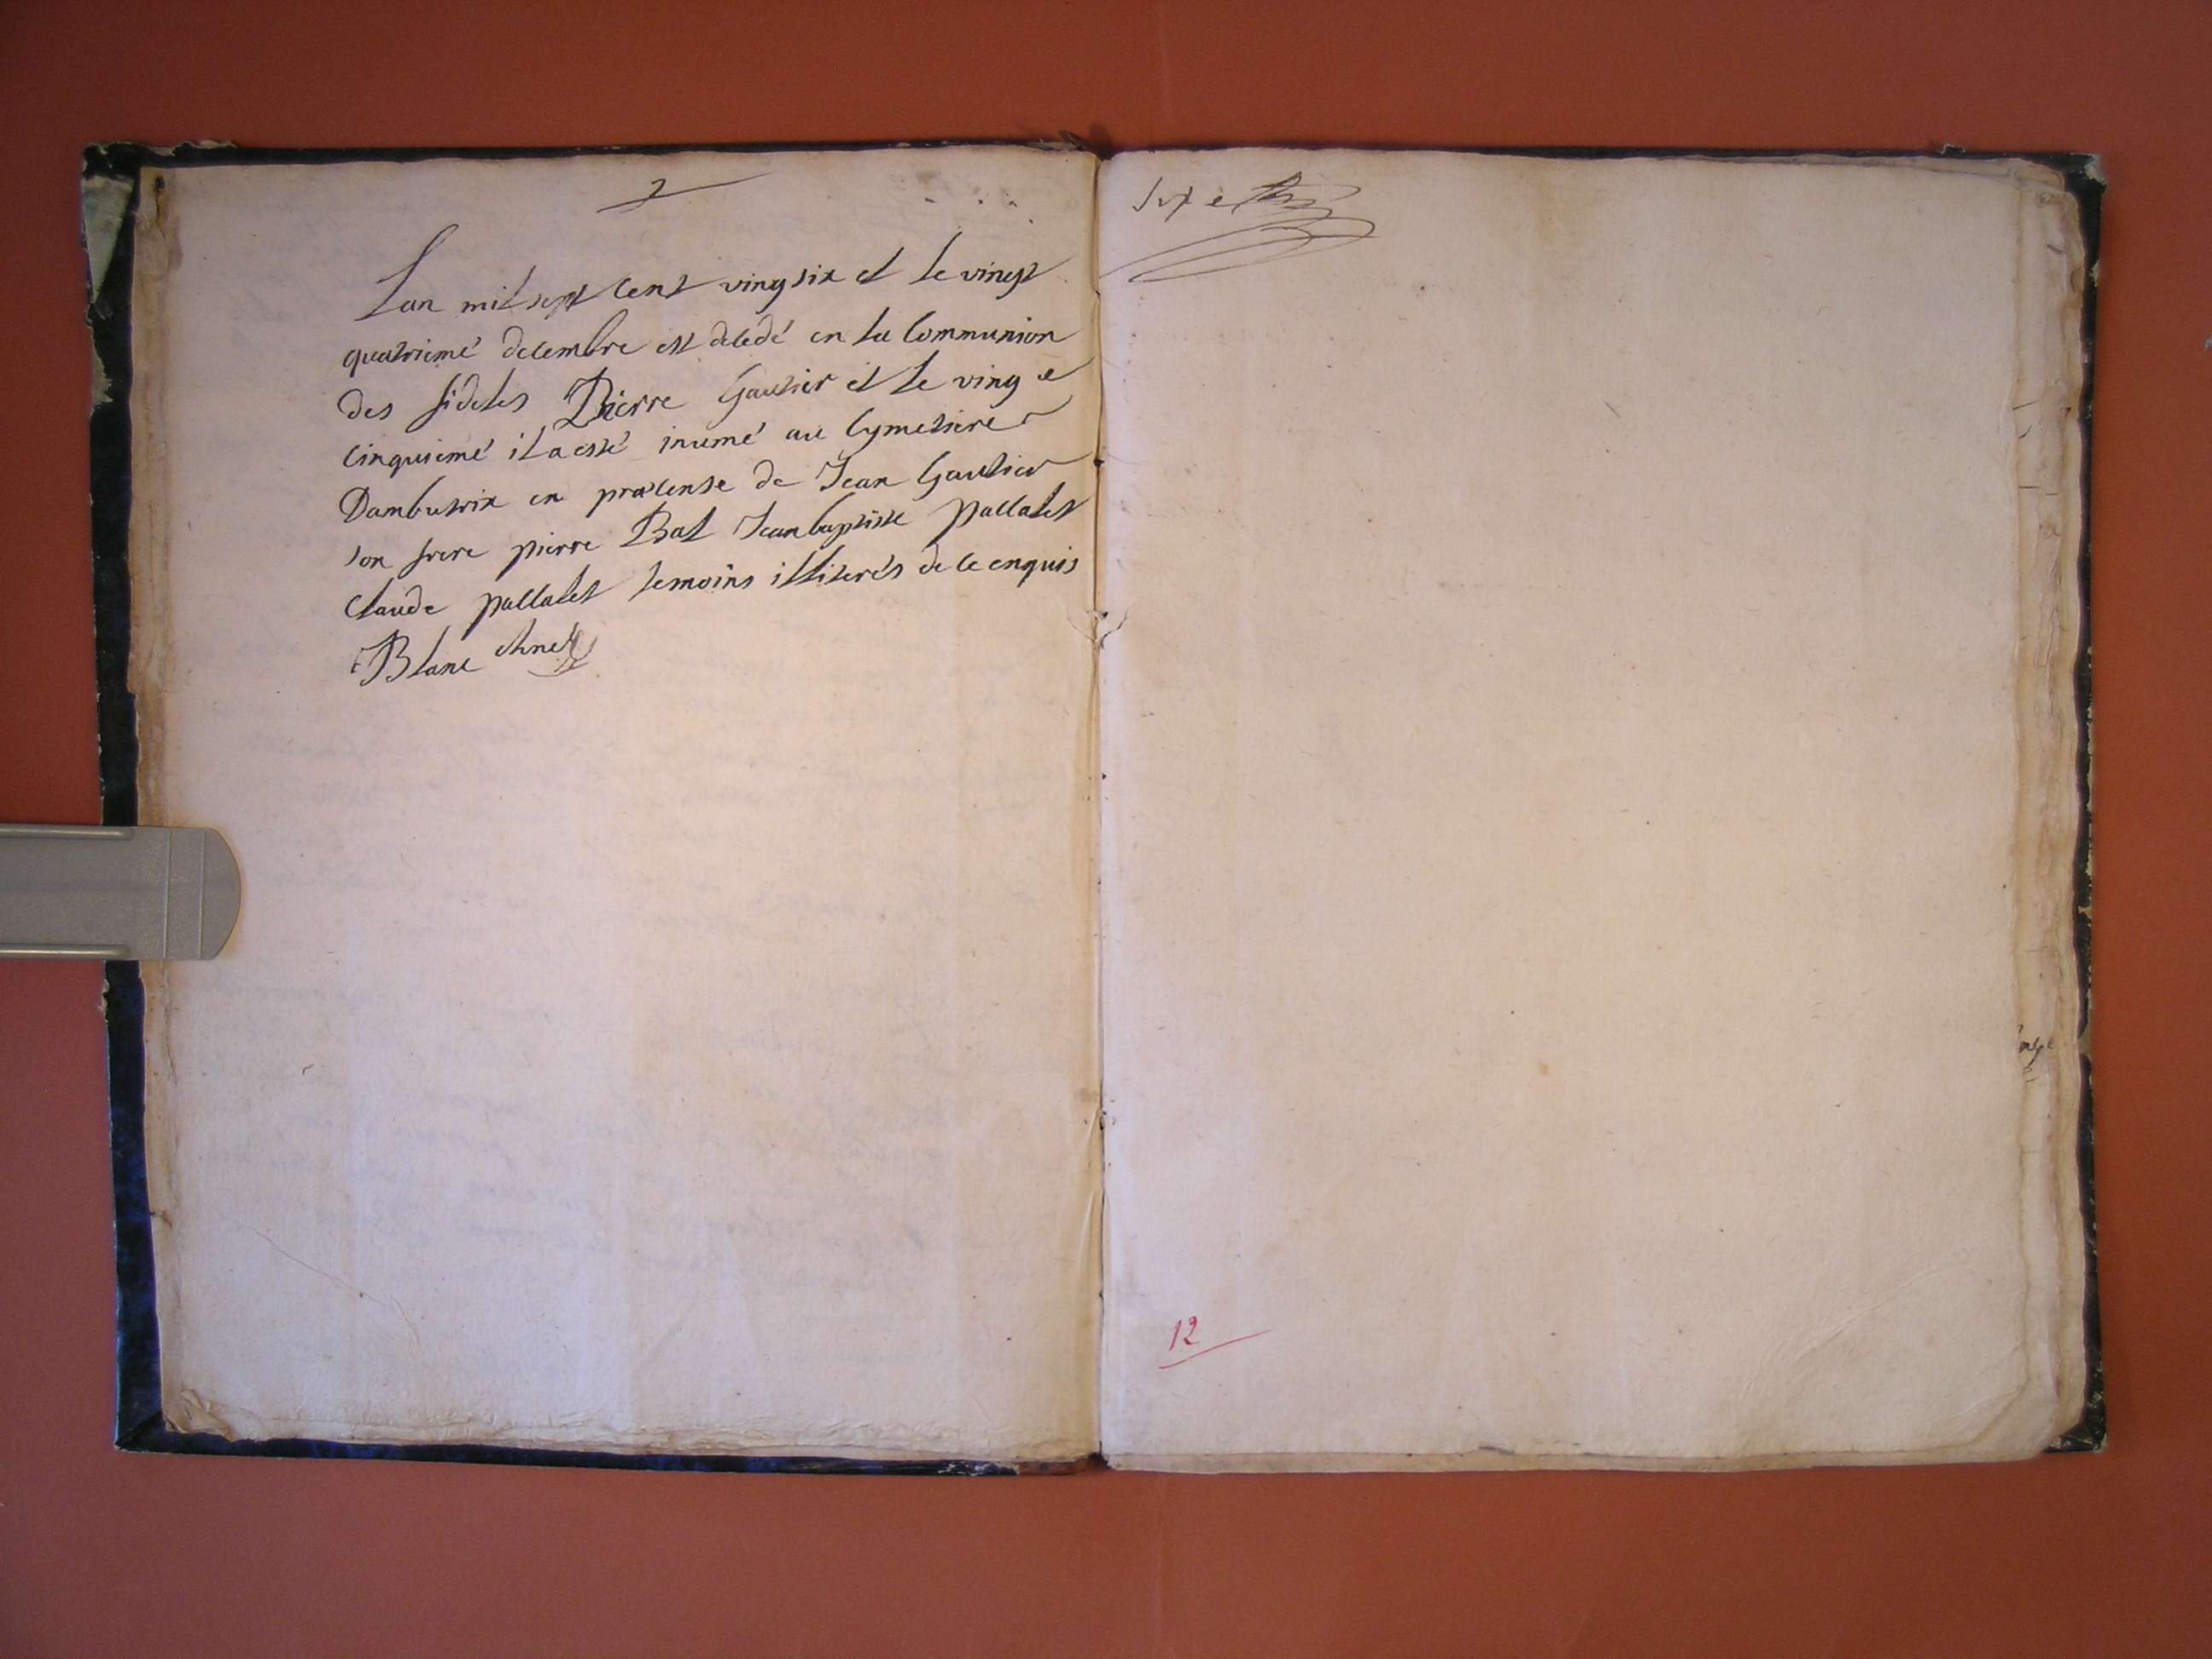 Lan mil sept cent vingsix et le vingt
quatriemé decembre est decedé en la Communion
des fideles Pierre Gautier et le vingt
cinquiemé il a esté inumé au Cymetiere
Dambutrix en præsense de Jean Gautier
son frere pierre Bal Jeanbaptiste pallatet
Claude pallatet temoins illiterés de ce enquis
Blanc
12